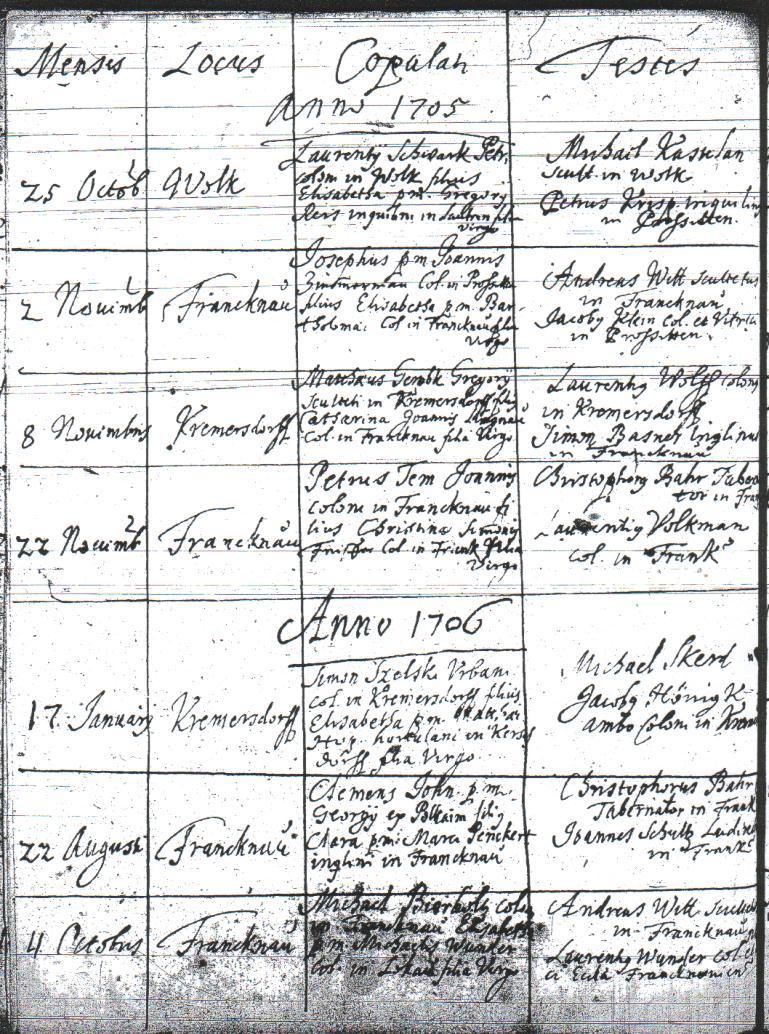 Mensis Locus Copulati Testes
Anno 1705
25 Octob Wolk
Laurentÿ Schwark Petri
coloni in Wolk filius
Elisabetha pm. Gregorÿ
Reis inquilini in Lautern filia
virgo
Michael Kastelan
scult. in Wolk
Petrus Krisp inquilin
in Prossitten.
2 Novimb Francknau
Josephus pm Joannis
Zimmerman Col. in Prossitt
filius Elisabetha p.m. Bar-
tholomæi Col in Francknau filia
virgo
Andreas Witt scultetus
in Francknau
Jacoby Klein Col. et Vitric
in Prossitten.
8 Novimbris Kremersdorff
Matthæus Gregorÿ
sculteti in Kremersdorff filiy
Catharina Joannis
Col. in Francknau filia Virgo
Laurentiy Wolff colony
in Kremersdorff
Simon Basner Inqlinus
in Francknau
22 Novimb Francknau
Petrus Tem Joannis
coloni in Francknau fi
lius Christina Simonis
Col. in Frank filia
virgo
Christophory Bahr Taber
tor in Fran
Laurentiy Volkman
col. in Frank
Anno 1706
17 Januarÿ Kremersdorff
Simon Szelski Urbani
col. in Kremersdorff filius
Elisabetha p.m.
hortulani in Kerss
dorff filia Virgo
Michael Skerd
Jacoby Hönig K
ambo Coloni in Krem
22 Augusti Francknau
Clemens John p.m.
Georgÿ ex filiy
Clara pm: Marci Penckert
inqlini in Francknau
Christophorus Bahr
Tabernator in Frank
Joannes Schultz
in Frank
4 Octobris Francknau
Michael Bierholtz colon
in Francknau Elisabeth
p.m. Michaelis Wunder
Col. in Lokau filia Virgo
Andreas Witt scultet
in Francknau
Laurentiy Wunder col.
Francknauien